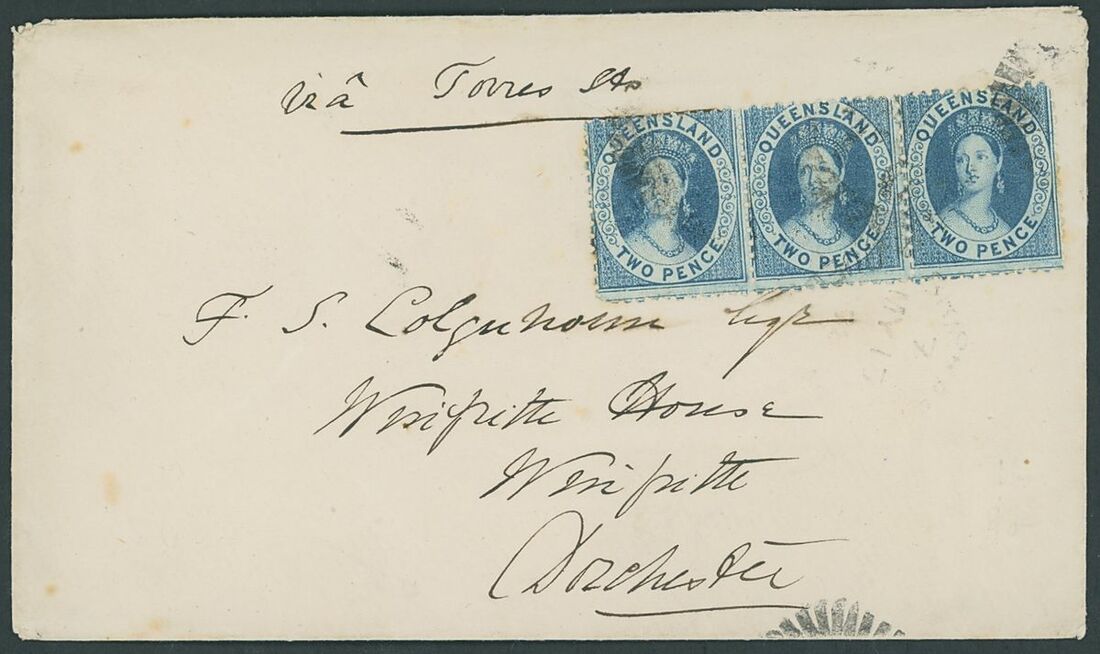 viâ Torres Sts
QUEENSLAND
TWO PENCE
QUEENSLAND
TWO PENCE
QUEENSLAND
TWO PENCE
F. S. Colquhoun Esqr
House
Dorchester